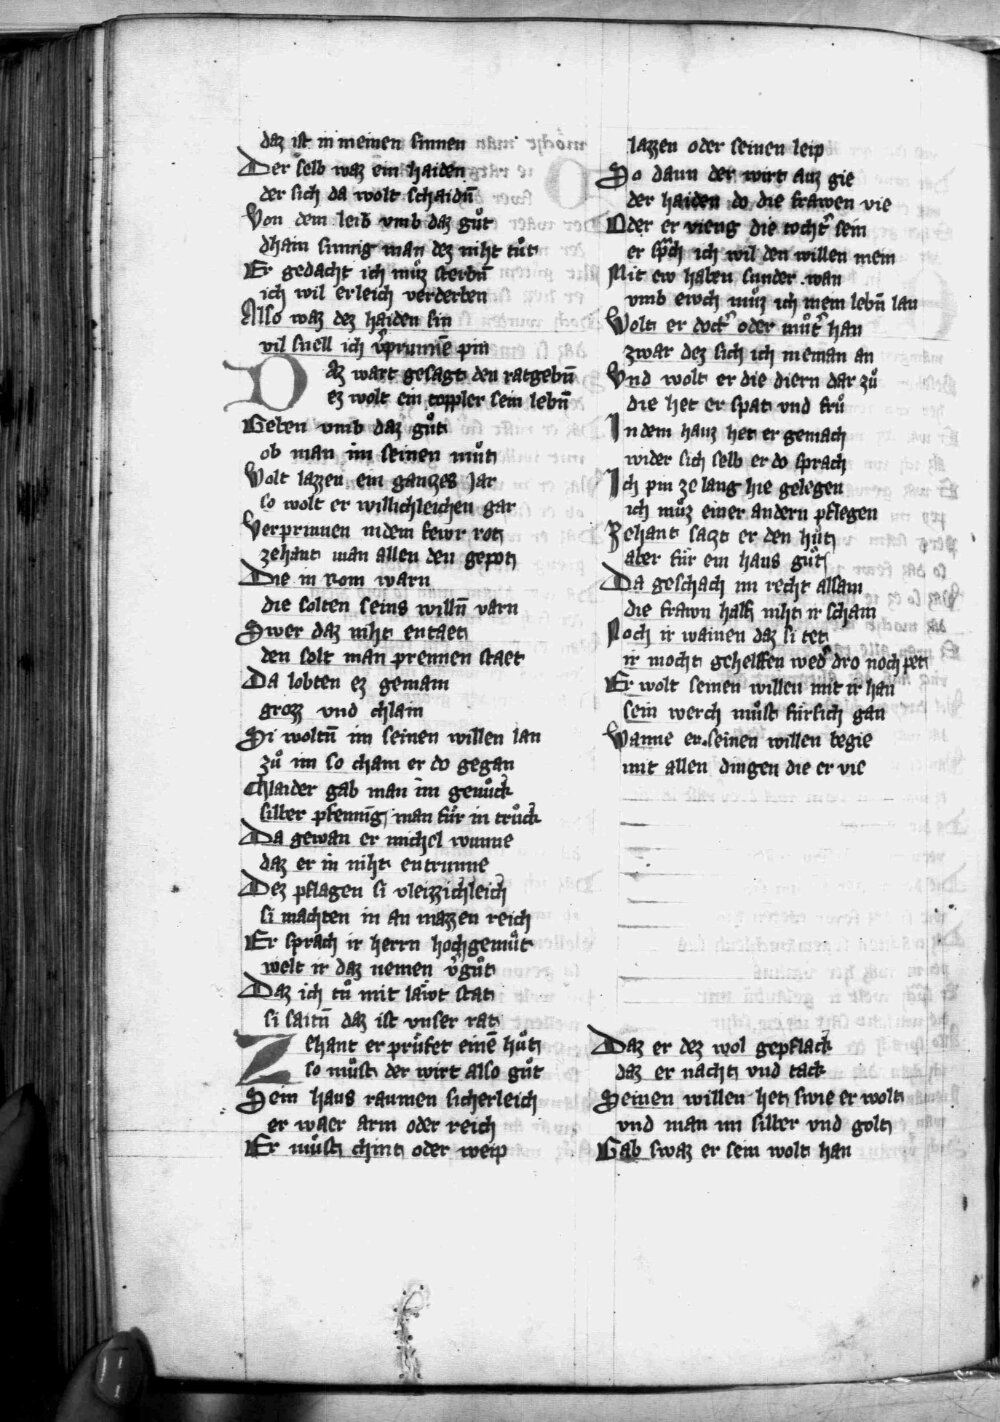 daz ist in meinen sinnen
Der selb waz ein haiden
der sich da wolt schaidn̄
Von dem leib vmb daz guͦt
dhain sinnig man dez niht tuͦt
Er gedacht ich muͦz sterbn̄
ich wil erleich verderben
Also waz dez haiden sin
vil snell ich v̓prunnē pin
Daz wart gesagt den ratgebn̄
ez wolt ein toppler sein lebn̄
Geben vmb daz guͦt
ob man im seinen muͦt
Wolt lazzen ein ganczes Jar
so wolt er willichleichen gar
Verprinnen in dem fewr rot
zehant man allen den gepot
Die in Rom warn
die solten seins willn̄ varn
Swer daz niht entaet
den solt man prennen staet
Da lobten ez gemain
grozz vnd chlain
Si woltn̄ im seinen willen lan
zuͦ im so cham er do gegan
Chlaider gab man im genuͦck
silber pfenning man fuͤr in truͦck
Da gewan er michel wunne
daz er in niht entrunne
Dez pflagen si vleizzichleich
si machten in an mazzen reich
Er sprach ir herrn hochgemuͦt
welt ir daz nemen v̓guͦt
Daz ich tuͦ mit laͤwt stat
si saitn̄ daz ist vnser rat
Zehant er pruͤfet einē huͦt
so muͦst der wirt also guͦt
Sein haus raumen sicherleich
er waer arm oder reich
Er muͦst chint oder weip
lazzen oder seinen leip
So dann der wirt auz gie
der haiden do die frawen vie
Oder er vieng die tocht̓ sein
er sp̄ch ich wil den willen mein
Mit ew haben sunder wan
vmb ewch muͦz ich mein lebn̄ lan
Wolt er tocht̓ oder muͦt̓ han
zwar dez sich ich nieman an
Vnd wolt er die diern dar zuͦ
die het er spat vnd fruͦ
In dem hauz het er gemach
wider sich selb er do sprach
Ich pin ze lang hie gelegen
ich muͦz einer andern pflegen
Zehant sazt er den huͦt
aber fuͤr ein haus guͦt
Da geschach im recht alsam
die frawn half niht ir scham
Noch ir wainen daz si tet
ir mocht gehelffen wed̓ dro noch pet
Er wolt seinen willen mit ir han
sein werch muͦst fuͤrsich gan
Wanne er seinen willen begie
mit allen dingen die er vie
Daz er dez wol gepflack
daz er nacht vnd tack
Seinen willen het swie er wolt
vnd man im silber vnd golt
Gab swaz er sein wolt han